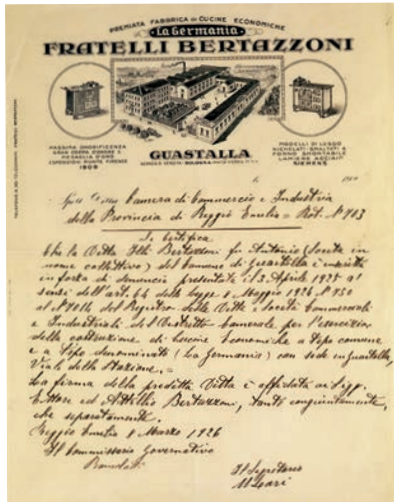 PREMIATA FABBRICA DI CUCINE ECONOMICHE
"La Germania"
FRATELLI BERTAZZONI
MASSIMA ONORIFICENZA
GRAN COPPA D'ONORE E
MEDAGLIA D'ORO
ESPOSIZIONE RIUNITE FIRENZE
1909
GUASTALLA
MODELLI DI LUSSO
NICHELATI-SMALTATI A
FORNO SMONTABILE
LAMIERE ACCIAIO
SIEMENS
Camera di Commercio e Industria
della Provincia di Reggio Emilia = Rot. N° 703
Si certifica
che la Ditta Flli Bertazzoni fu Antonio (Società in
nome collettivo) del Comune di Guastalla è inscritta
in forza di denuncia presentata il 3 Aprile 1925 ai
sensi dell'art. 64 della legge 8 Maggio 1926 N° 750
al N° del Registro delle Ditte e Società Commerciali
e Industriali del Distretto Camerale per l'esercizio
della costruzione di Cucine Economiche a tipo comune
e a tipo denominati (La Germania) con sede in Guastalla,
Viale della Stazione. =
La firma della predetta Ditta è affidata ai Sigg.
Ettore ed Attillio Bertazzoni, tanto congiuntamente,
che separatamente.
Reggio Emilia 8 Marzo 1926
Il Commissario Governativo
Il Segretario